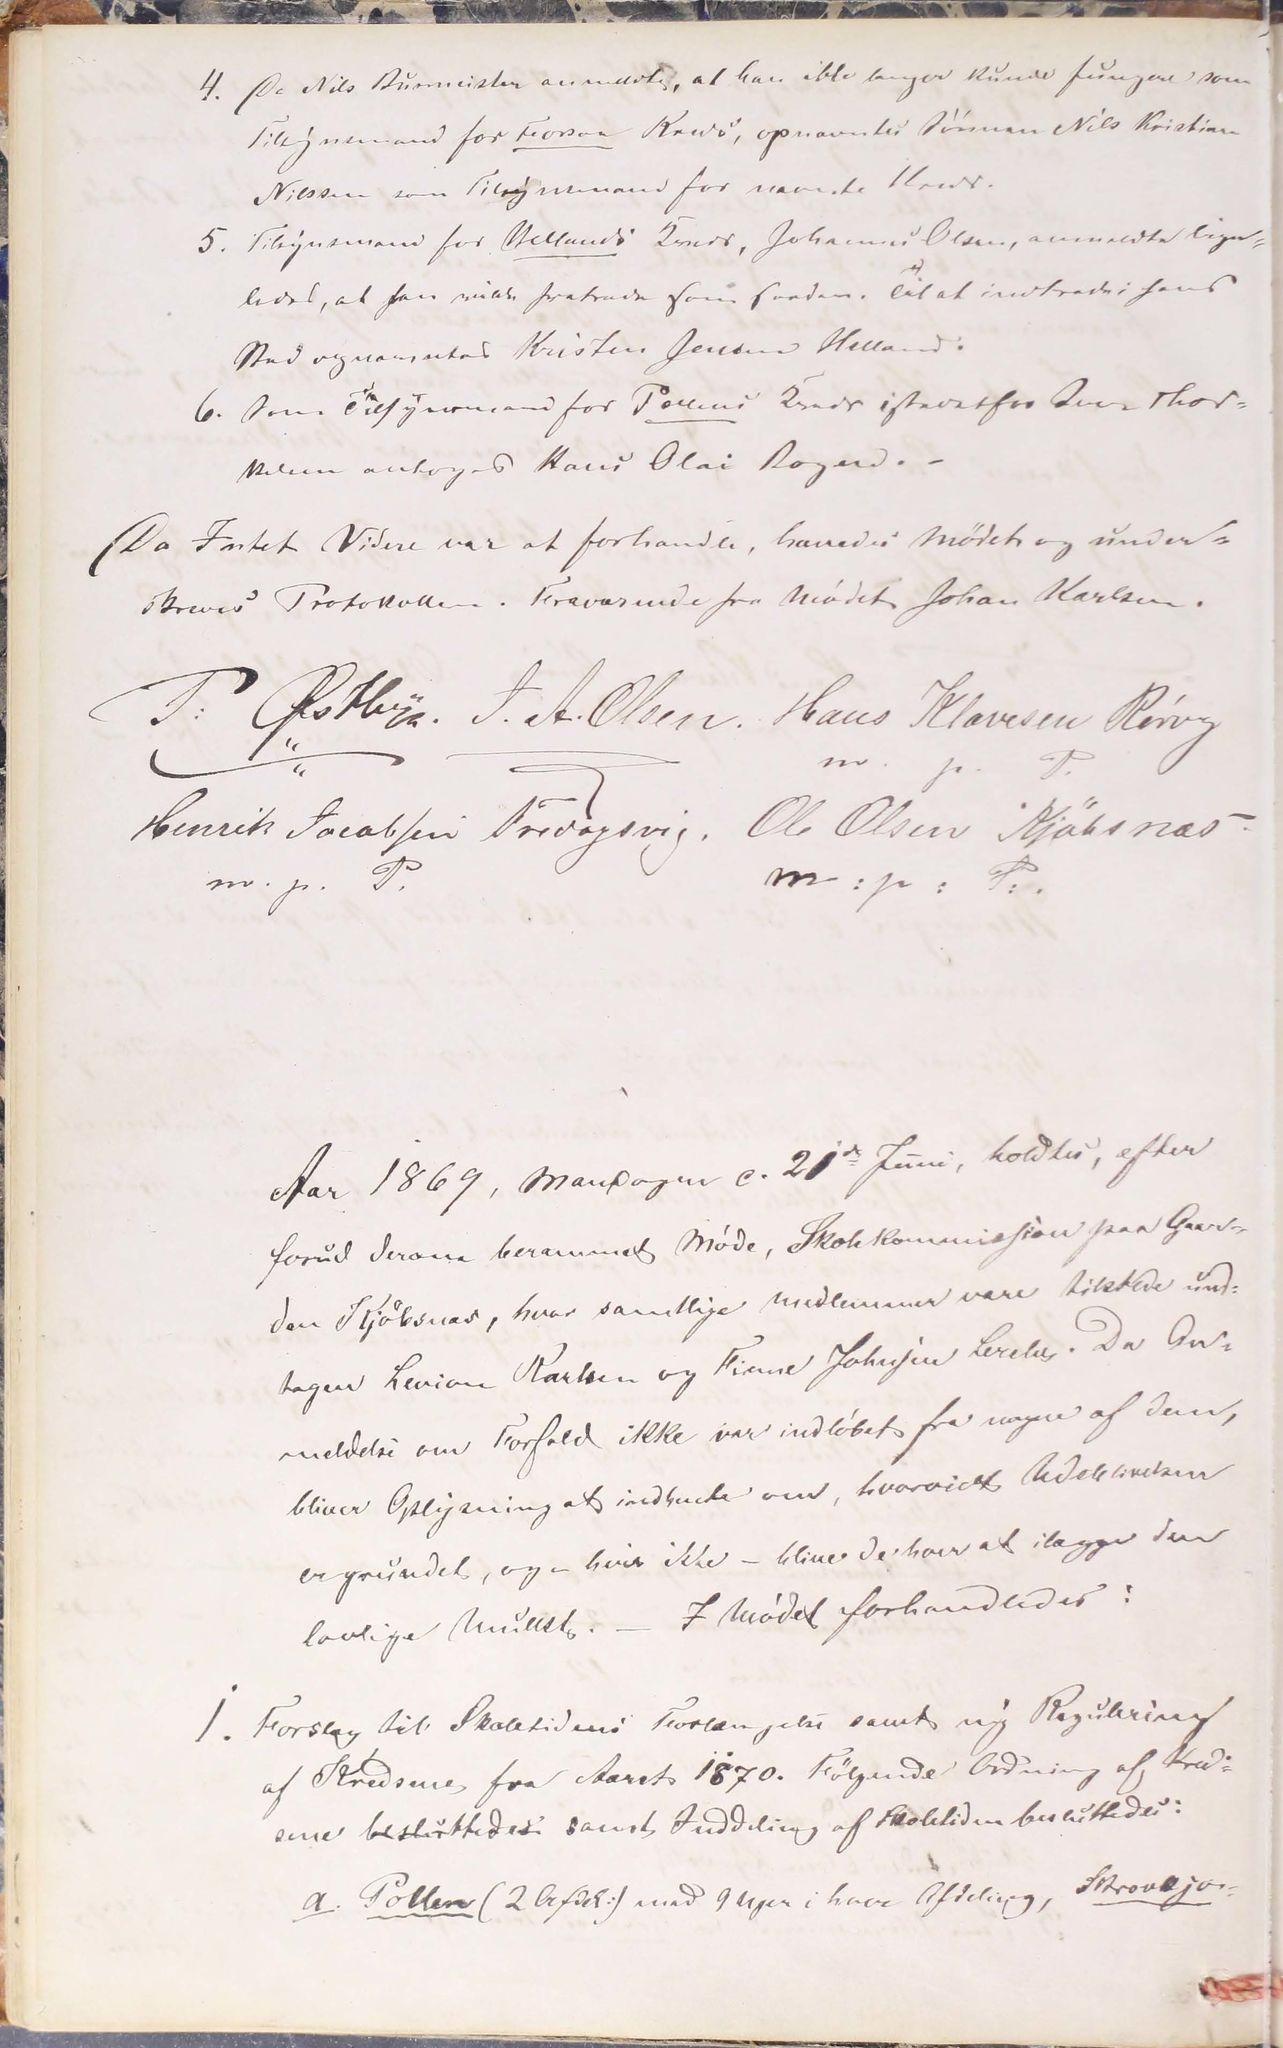 4. Da Nils Burmeister anmeldte, at han ikke længer kunde fungere som
Tilsynsmand for Forsaa Kreds, opnævntes Sönnen Nils Kristian
Nilssen som Tilsynsmand for nævnte Kreds.
5. Tilsynsmand for Hellands Kreds, Johannes Olsen, anmeldte lige=
ledes, at han maatte fratræde som saadan. Til at indtræde i hans
Sted opnævntes Kristen Jensen Helland.
6. Som Tilsynsmand for Pollens Kreds istedetfor Thor=
kelsen antoges Hans Olai
Da Intet Videre var at forhandle, hævedes Mödet og under=
skreves Protokollen. Fraværende fra Mödet Johan Karlsen.
P: J. A. Olsen. Hans Klavesen Rörvg
m. p. P.
Henrik Jacobsen Tredagsvig. Ole Olsen Kjöbsnæs
m. p. P. m : p : P :.
Aar 1869, Mandagen d. 21de Juni, holdtes, efter
forud derom berammet Möde, Skolekommission paa Gaar=
den Kjöbsnæs, hvor samtlige Medlemmer vare tilstede und=
tagen Levion Karlsen og Finne Johnsen Da An=
meldelse om Forfald ikke var indlöbet fra nogen af dem,
bliver Oplysning at indhente om, hvorvidt Udeblivelsen
er grundet, og – hvis ikke – blive de hver at ilægge den
lovlige Mulkt. – I Mödet forhandledes:
1. Forslag til Skoletidens Forlængelse samt ny Regulering
af Kredsene fra Aaret 1870. Fölgende Ordning af Kred=
sene besluttedes samt Inddeling af Skoletiden besluttedes:
a. Pollen (2 Afdel:) med 9 Uger i hver Afdeling, Skrovkjo=